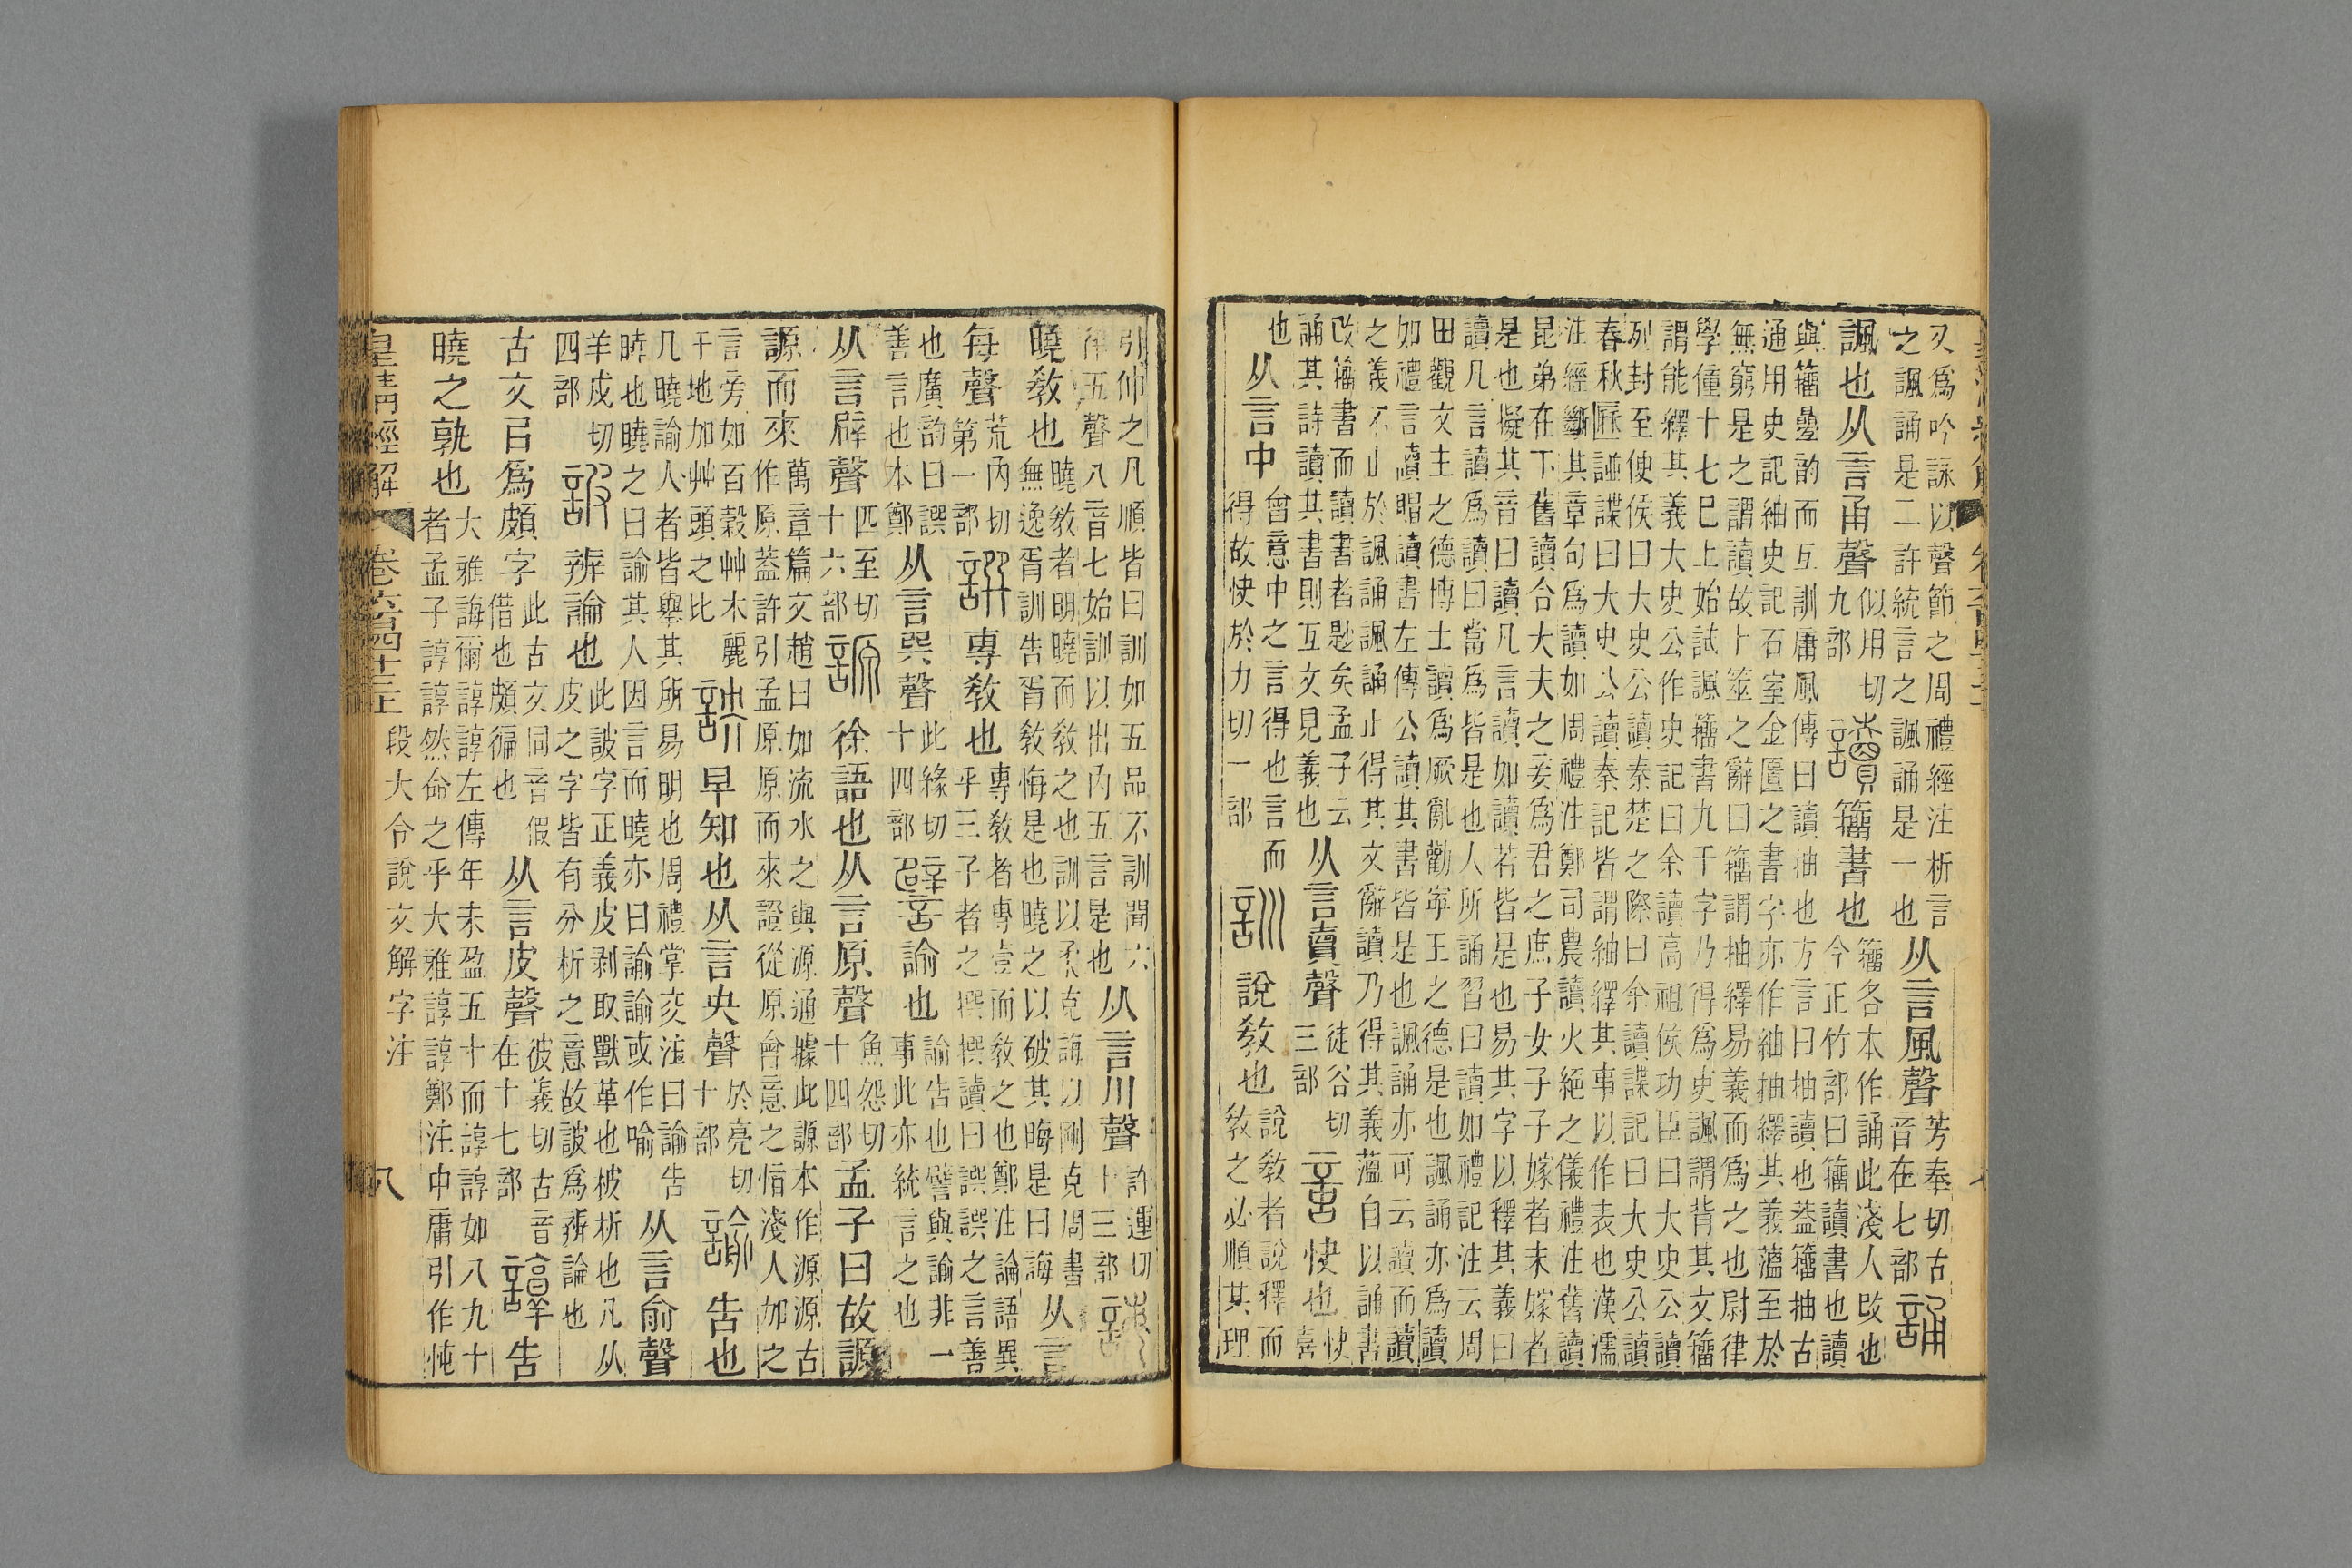 又爲吟詠以聲節之周禮經注析言
之諷誦是二許統言之諷誦是一也
从言風聲
芳奉切古
音在七部
誦
諷也从言甬聲
似用切
九部
讀籀書也
籀各本作誦此淺人改也
今正竹部曰籀讀書也讀
與籀曡韵而互訓庸風傳曰讀抽也方言曰抽讀也葢籀抽古
通用史記紬史記石室金匱之書字亦作紬抽繹其義蘊至於
無窮是之謂讀故卜筮之辭曰籀謂抽繹易義而爲之也尉律
學僮十七巳上始試諷籀書九千字乃得爲吏諷謂背其文籀
謂能繹其義大史公作史記曰余讀高祖侯功臣曰大史公讀
列封至便侯曰大史公讀秦楚之際曰余讀諜記曰大史公讀
春秋歷譜諜曰大史公讀秦記皆謂紬繹其事以作表也漢儒
注經斷其章句爲讀如周禮注鄭司農讀火絕之儀禮注舊讀
昆弟在下舊讀合大夫之妾爲君之庶子女子子嫁者未嫁者
是也擬其音曰讀凡言讀如讀若皆是也易其字以釋其義曰
讀凡言讀爲讀曰當爲皆是也人所誦習曰讀如禮記注云周
田觀文王之德博士讀爲厥亂勸寧王之德是也諷誦亦爲讀
如禮言讀賵讀書左傳公讀其書皆是也諷誦亦可云讀而讀
之義不止於諷誦諷誦止得其文辭讀乃得其義蘊自以誦書
改籀書而讀書者尟矣孟子云
誦其詩讀其書則互文見義也
从言賣聲
徒谷切
三部
快也
快
喜
也
从言中
會意中之言得也言而
得故快於力切一部
訓說敎也
說敎者說釋而
敎之必順其理
引伸之凡順皆曰訓如五品不訓聞六
律五聲八音七始訓以出內五言是也
从言川聲
許運切
十三部
誨
曉敎也
曉敎者明曉而敎之也訓以柔克誨以剛克周書
無逸胥訓告胥敎誨是也曉之以破其晦是曰誨
从言
每聲
荒內切
第一部
譔專敎也
專敎者專壹而敎之也鄭注論語異
乎三子者之撰撰讀曰譔譔之言善
也廣韵曰譔
善言也本鄭
从言巽聲
此緣切
十四部
譬諭也
諭告也譬與諭非一
事此亦統言之也
从言辟聲
匹至切
十六部
謜徐語也从言原聲
魚怨切
十四部
孟子曰故謜
謜而來
萬章篇文趙曰如流水之與源通據此謜本作源源古
作原葢許引孟原原而來證從原會意之恉淺人加之
言旁如百穀艸木麗
于地加艸頭之比
詇早知也从言央聲
於亮切
十部
諭告也
凡曉諭人者皆舉其所易明也周禮掌交注曰諭告
曉也曉之曰諭其人因言而曉亦曰諭諭或作喻
从言俞聲
羊戍切
四部
詖辨論也
此詖字正義皮剥取獸革也柀析也凡从
皮之字皆有分析之意故詖爲辨論也
古文㠯爲頗字
此古文同音假
借也頗偏也
从言皮聲
彼義切古音
在十七部
諄告
曉之孰也
大雅誨爾諄諄左傳年未盈五十而諄諄如八九十
者孟子諄諄然命之乎大雅諄諄鄭注中庸引作忳
皇清經解 卷六百四十三上 段大令說文解字注 八